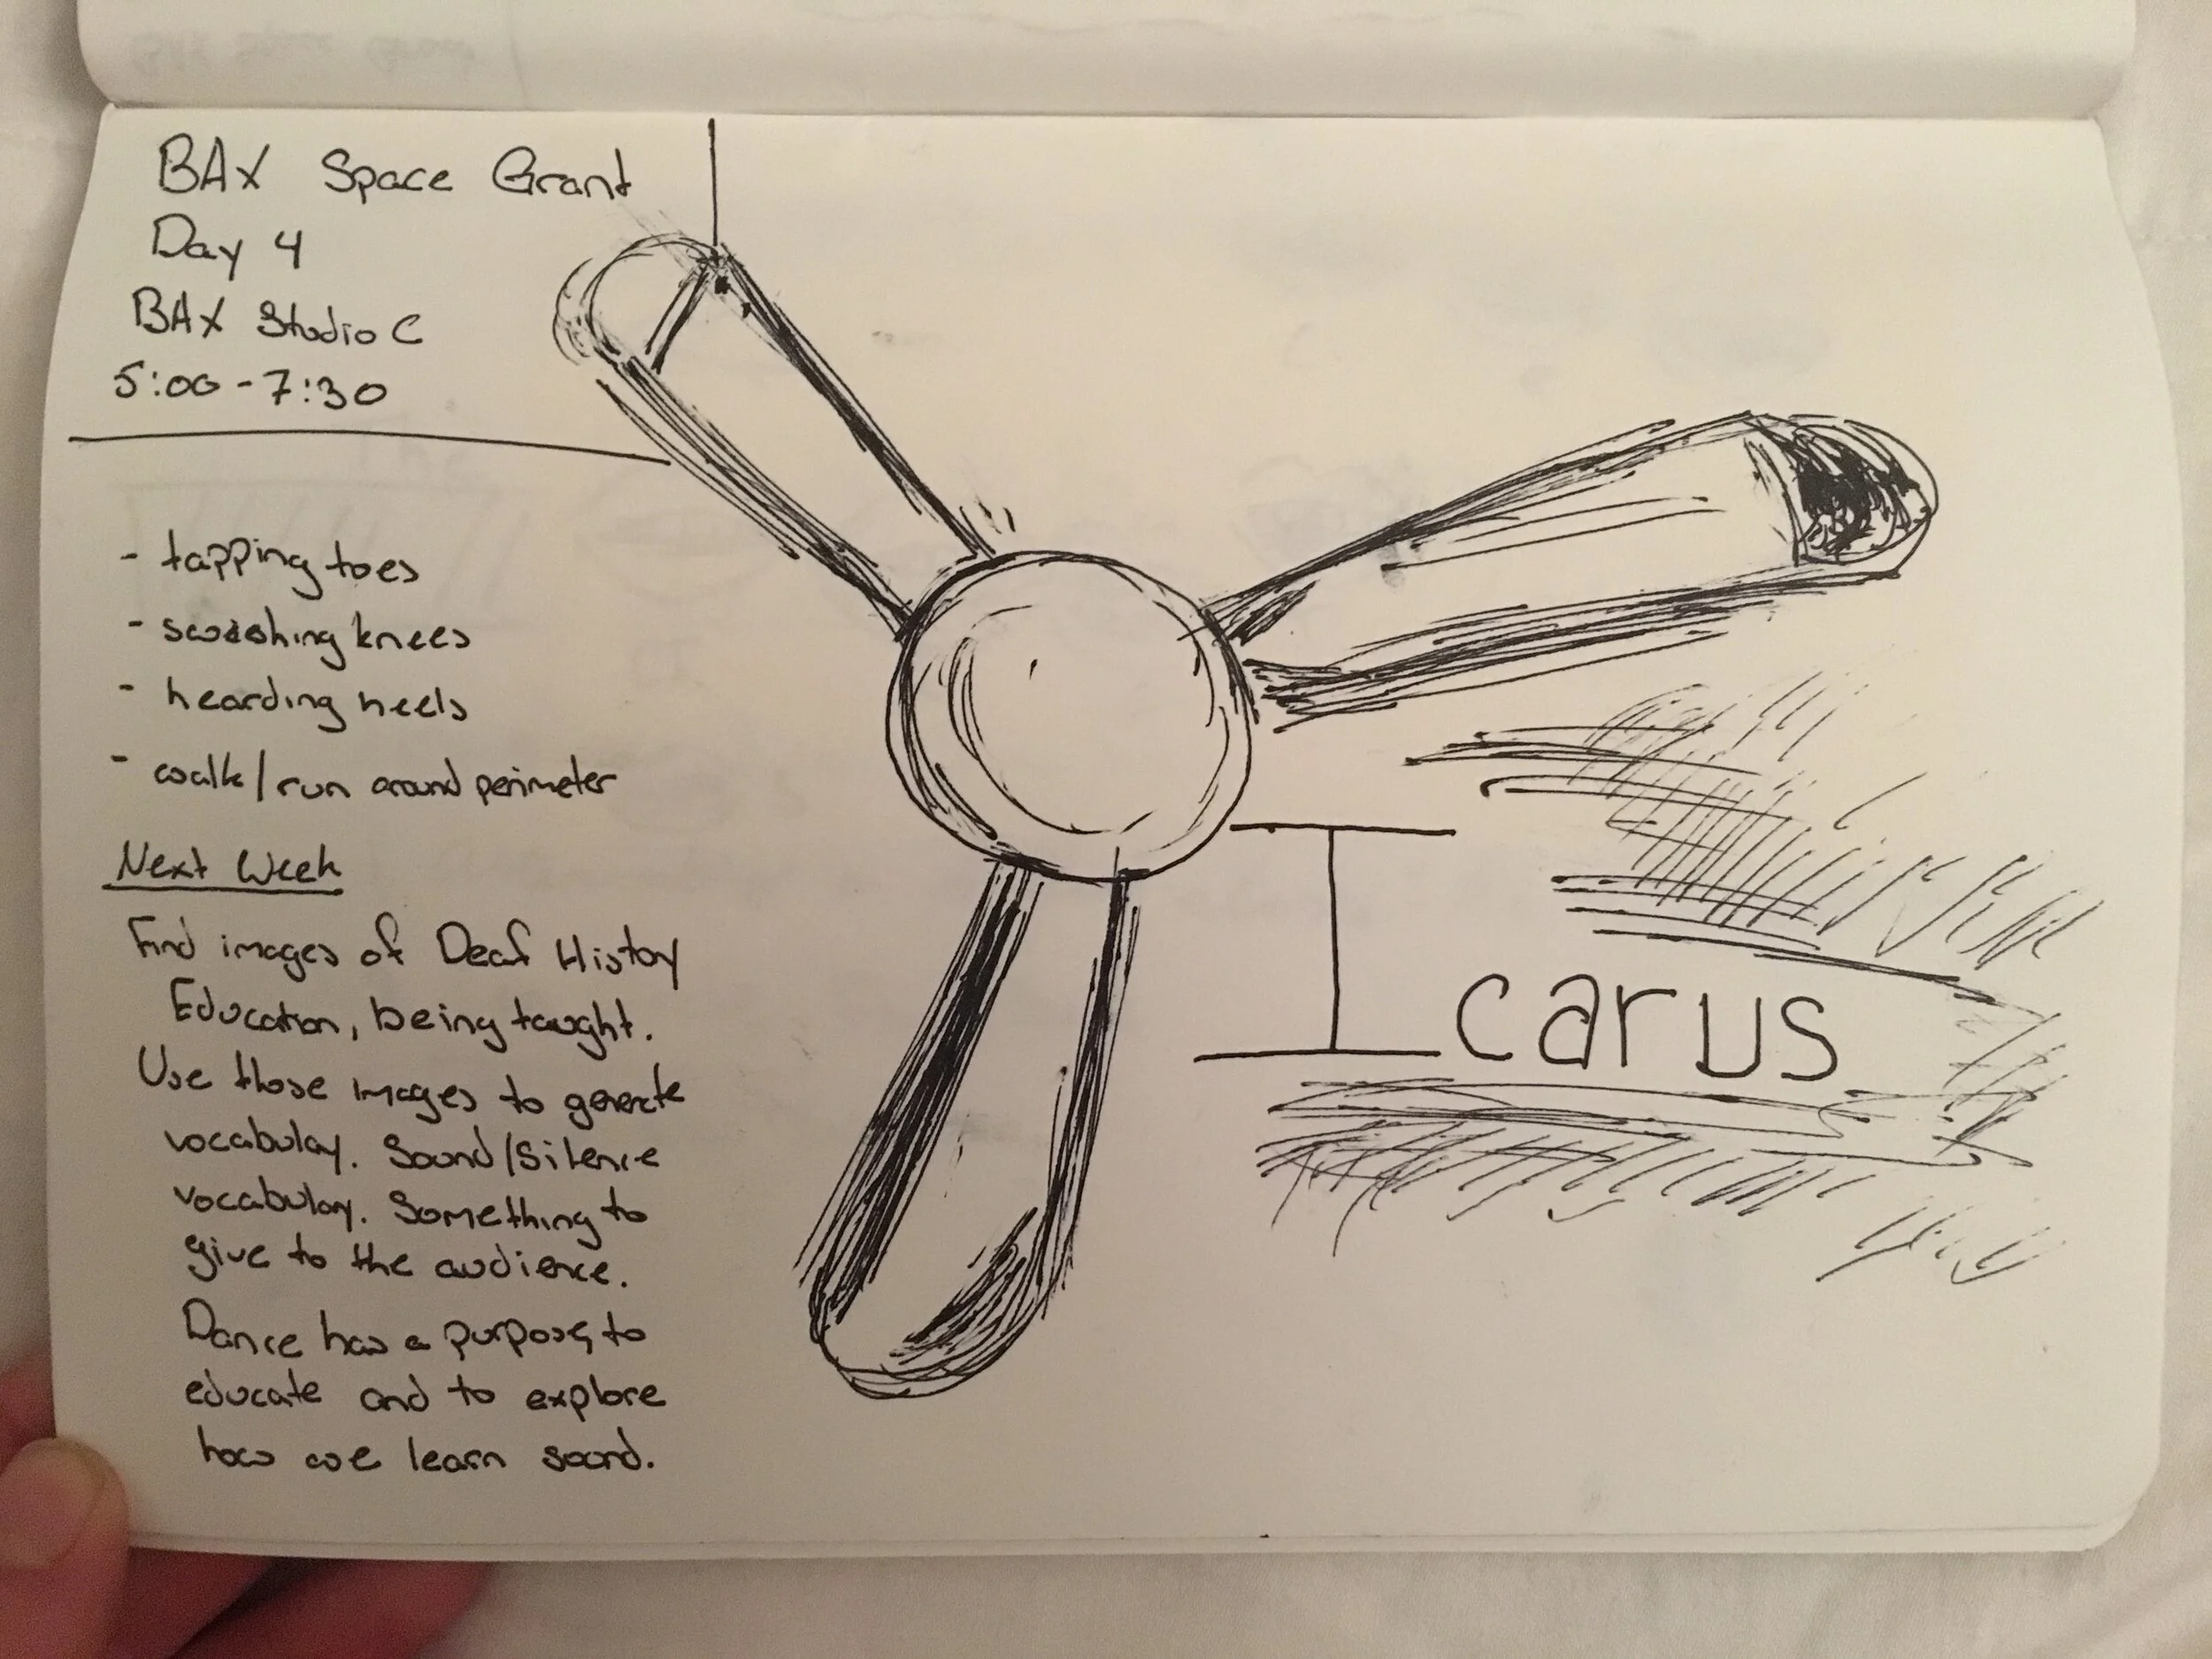 BAX Space Grant
Day 4
BAX Studio C
5:00-7:30
- tapping toes
- swooshing knees
- hearding heels
- walk/run around perimeter
Next Week
Find images of Deaf History
Education, being taught.
Use those images to generate
vocabulay. Sound/Silence
vocabulay. Something to
give to the audience.
Dance has a purpose, to
educate and to explore
how we learn sound.
Icarus